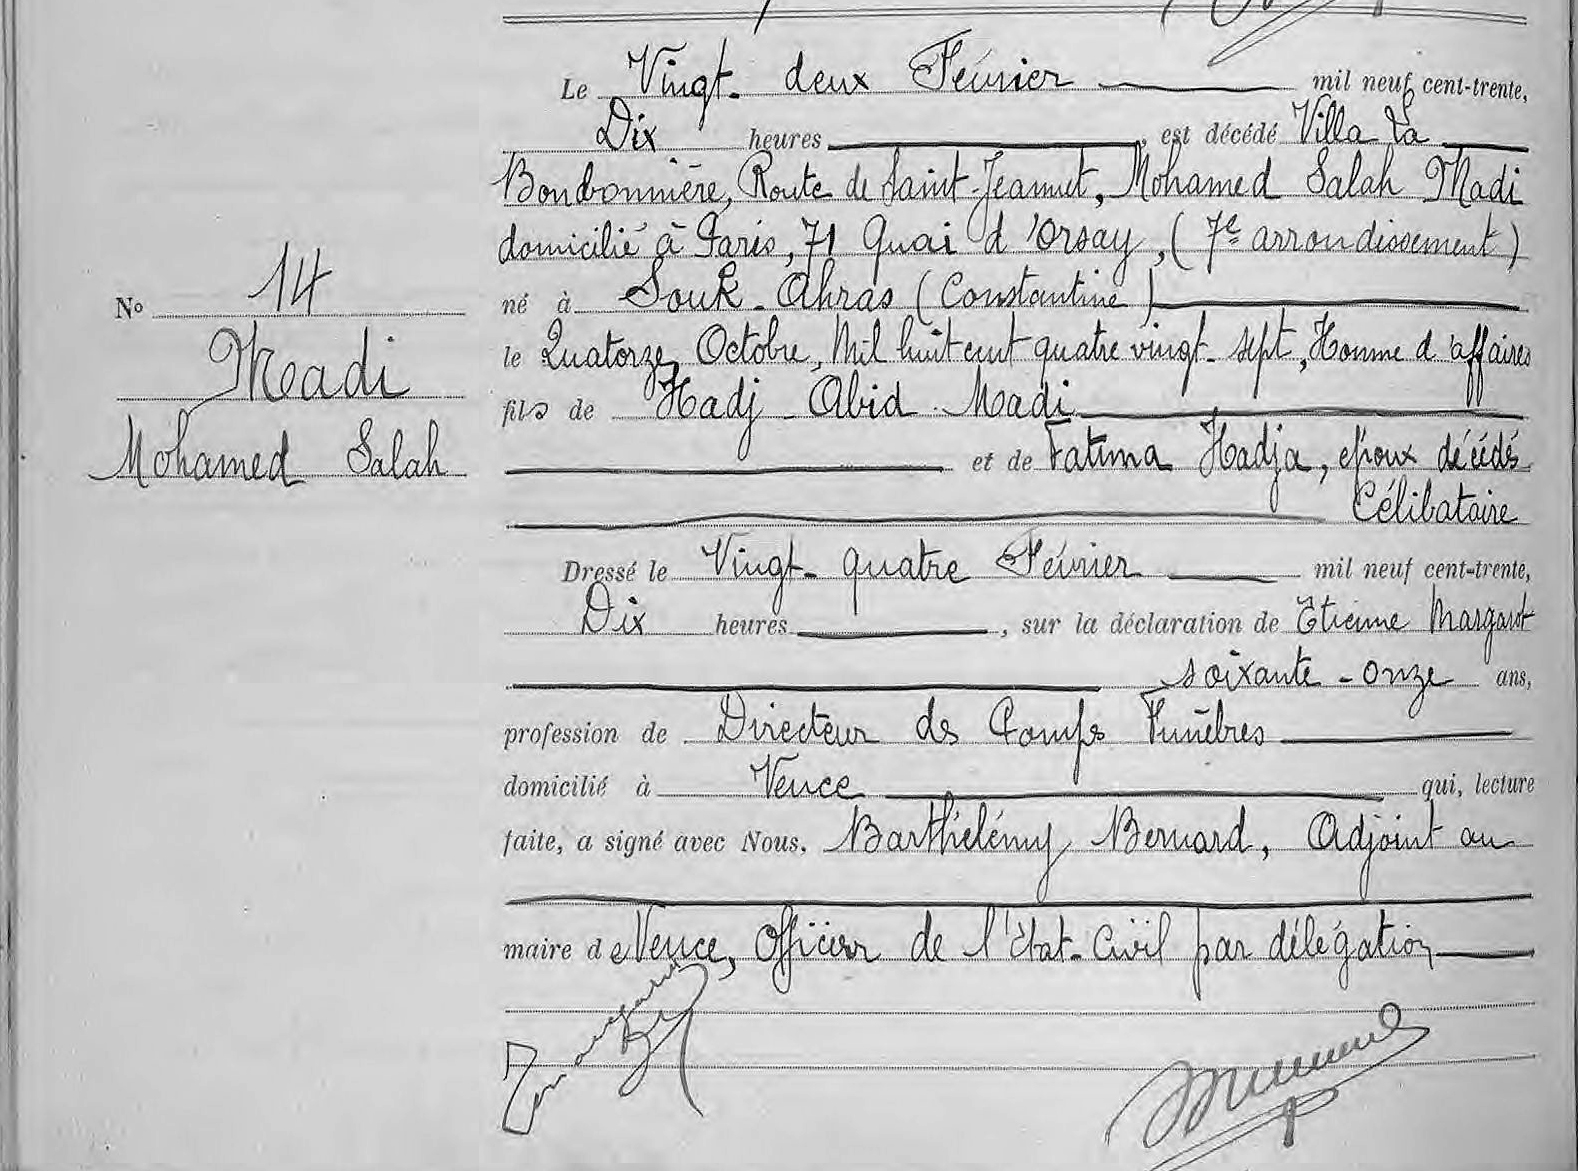 Le Vingt-deux Février mil neuf cent-trente,
Dix heures, est décédé Villa La
Bonbonnière, Route de Saint-Jeannet, Mohamed Salah Madi
domicilié à Paris, 71 Quai d'Orsay, (7e arrondissement)
né à Souk-Ahras (Constantine)
le Quatorze Octobre, Mil huit cent quatre vingt-sept, Homme d'affaires
fils de Hadj Abid Madi
et de Fatima Hadja, époux décédés
Célibataire
Dressé le Vingt-quatre Février mil neuf cent-trente,
Dix heures, sur la déclaration de Etienne Margarot
soixante-onze ans,
profession de Directeur des Pompes Funèbres
domicilié à Vence qui, lecture
faite, a signé avec Nous, Barthélémy Bernard, Adjoint au
maire de Vence, Officier de l'Etat-Civil par délégation
No 14
Madi
Mohamed Salah